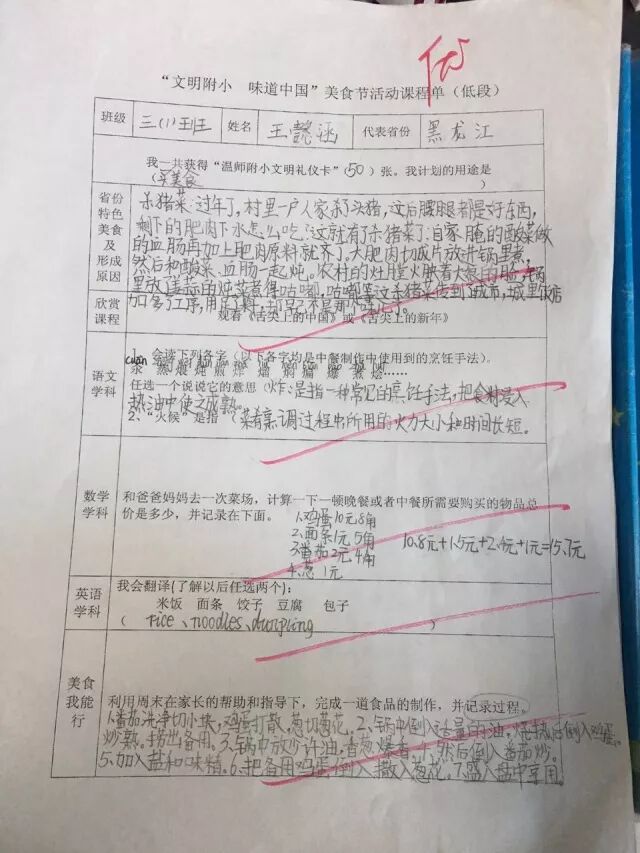 优
“文明附小 味道中国”美食节活动课程单（低段）
班级 三(1)班 姓名 王懿涵 代表省份 黑龙江
我一共获得“温师附小文明礼仪卡”(50）张。我计划的用途是
（买美食 ）
省份特色美食及形成原因
杀猪菜:过年了,村里一户人家杀了头猪,这后腰腿都是好东西,
剩下的肥肉下水怎么吃?这就有了杀猪菜了:自家腌的酸菜做
的血肠再加上肥肉原料就齐了。大肥肉切成片放进锅里煮,
然后和酸菜、血肠一起炖。农村的灶膛火映着大娘的脸,锅
里放
咕嘟,咕嘟等这杀猪菜传到了城市,城里饭店
加多了工序,用
欣赏课程
观看《舌尖上的中国》或《舌尖上的新年》
语文学科
1、会读下列各字（以下各字均是中餐制作中使用到的烹饪手法）。
cuān
任选一个说说它的意思（炸:是指一种常见的烹饪手法,把食材浸入
热油中使之成熟。
2、“火候”是指（菜肴烹调过程中所用的火力大小和时间长短。
数学学科
和爸爸妈妈去一次菜场，计算一下一顿晚餐或者中餐所需要购买的物品总
价是多少，并记录在下面。 1.鸡蛋10元8角
2.面条1元5角
3.番茄2元4角 10.8元+1.5元+2.4元+1元=15.7元
4.葱1元
英语学科
我会翻译(了解以后任选两个)：
米饭 面条 饺子 豆腐 包子
（ rice、noodles、dumpling ）
美食我能行
利用周末在家长的帮助和指导下，完成一道食品的制作，并记录过程。
1.番茄洗净切小块,鸡蛋打散,葱切葱花。2、锅中倒入适量的油,烧热后倒入鸡蛋,
炒熟。捞出备用。3、锅中放少许油,香葱爆香 4、然后倒入番茄炒。
5、加入盐和味精。6、把备用鸡蛋倒入撒入葱花。7、盛入盘中享用。